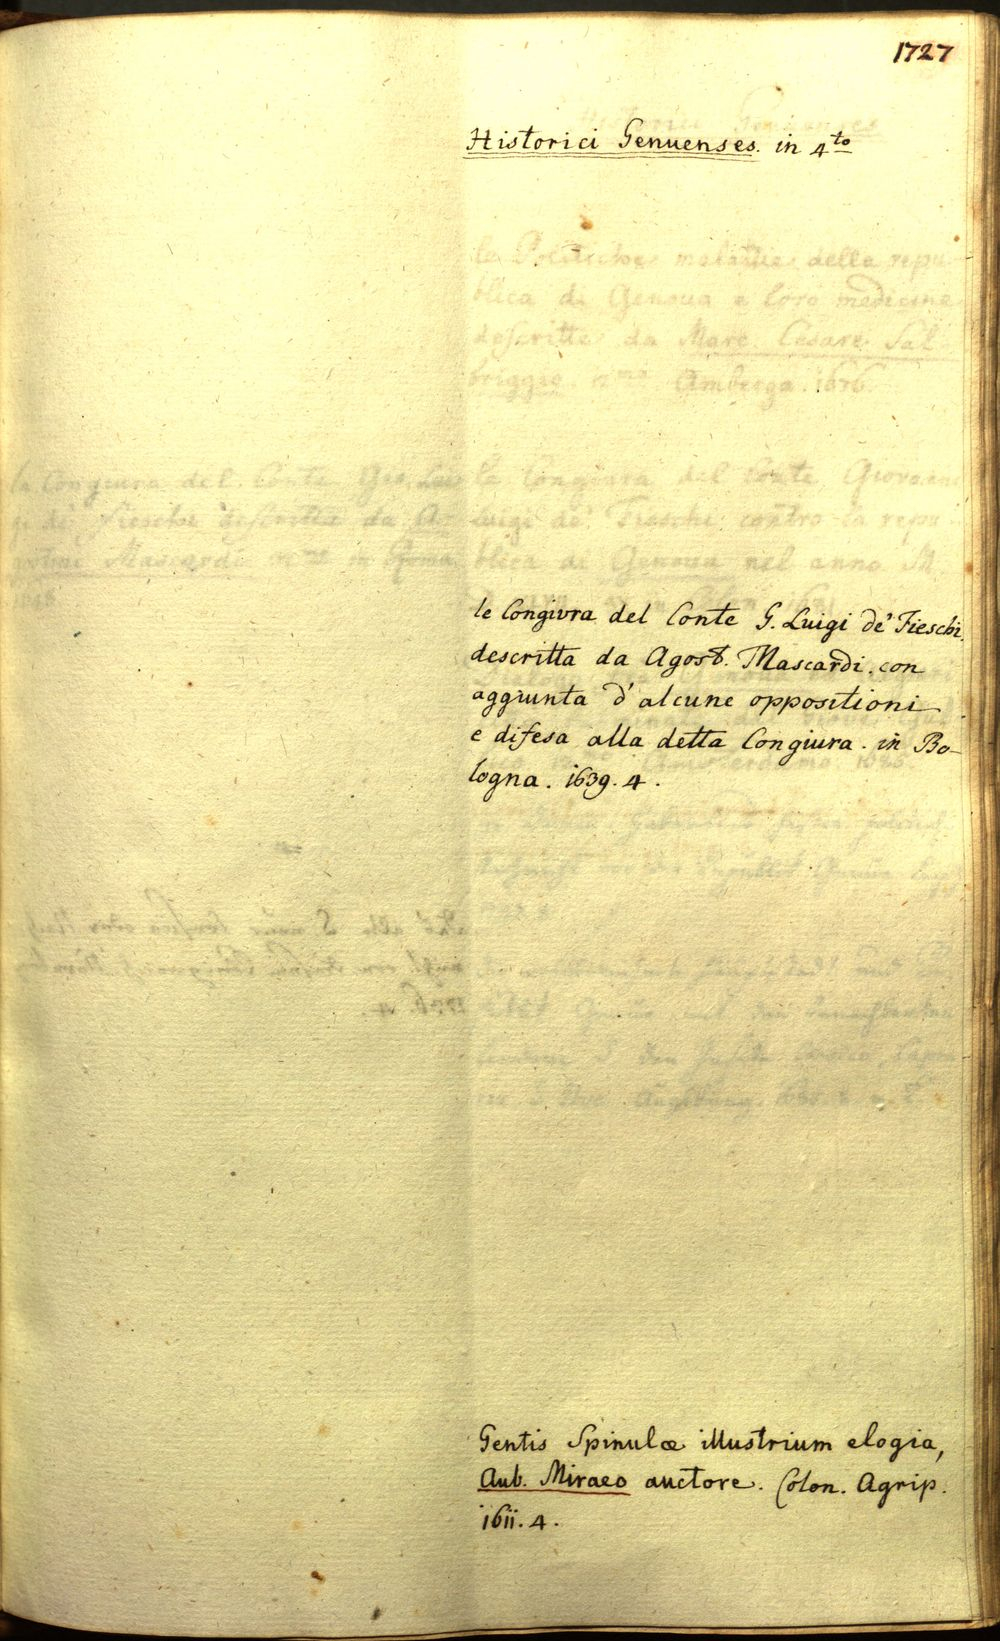 1727
Historici Genuenses. in 4to
le Congivra del Conte G. Luigi de' Fieschi
descritta da Agost. Mascardi. con
aggiunta d'alcune oppositioni
e difesa alla detta Congiura. in Bo-
logna. 1639. 4.
Gentis Spinulæ illustrium elogia,
Aub. Miraeo auctore. Colon. Agrip.
1611. 4.